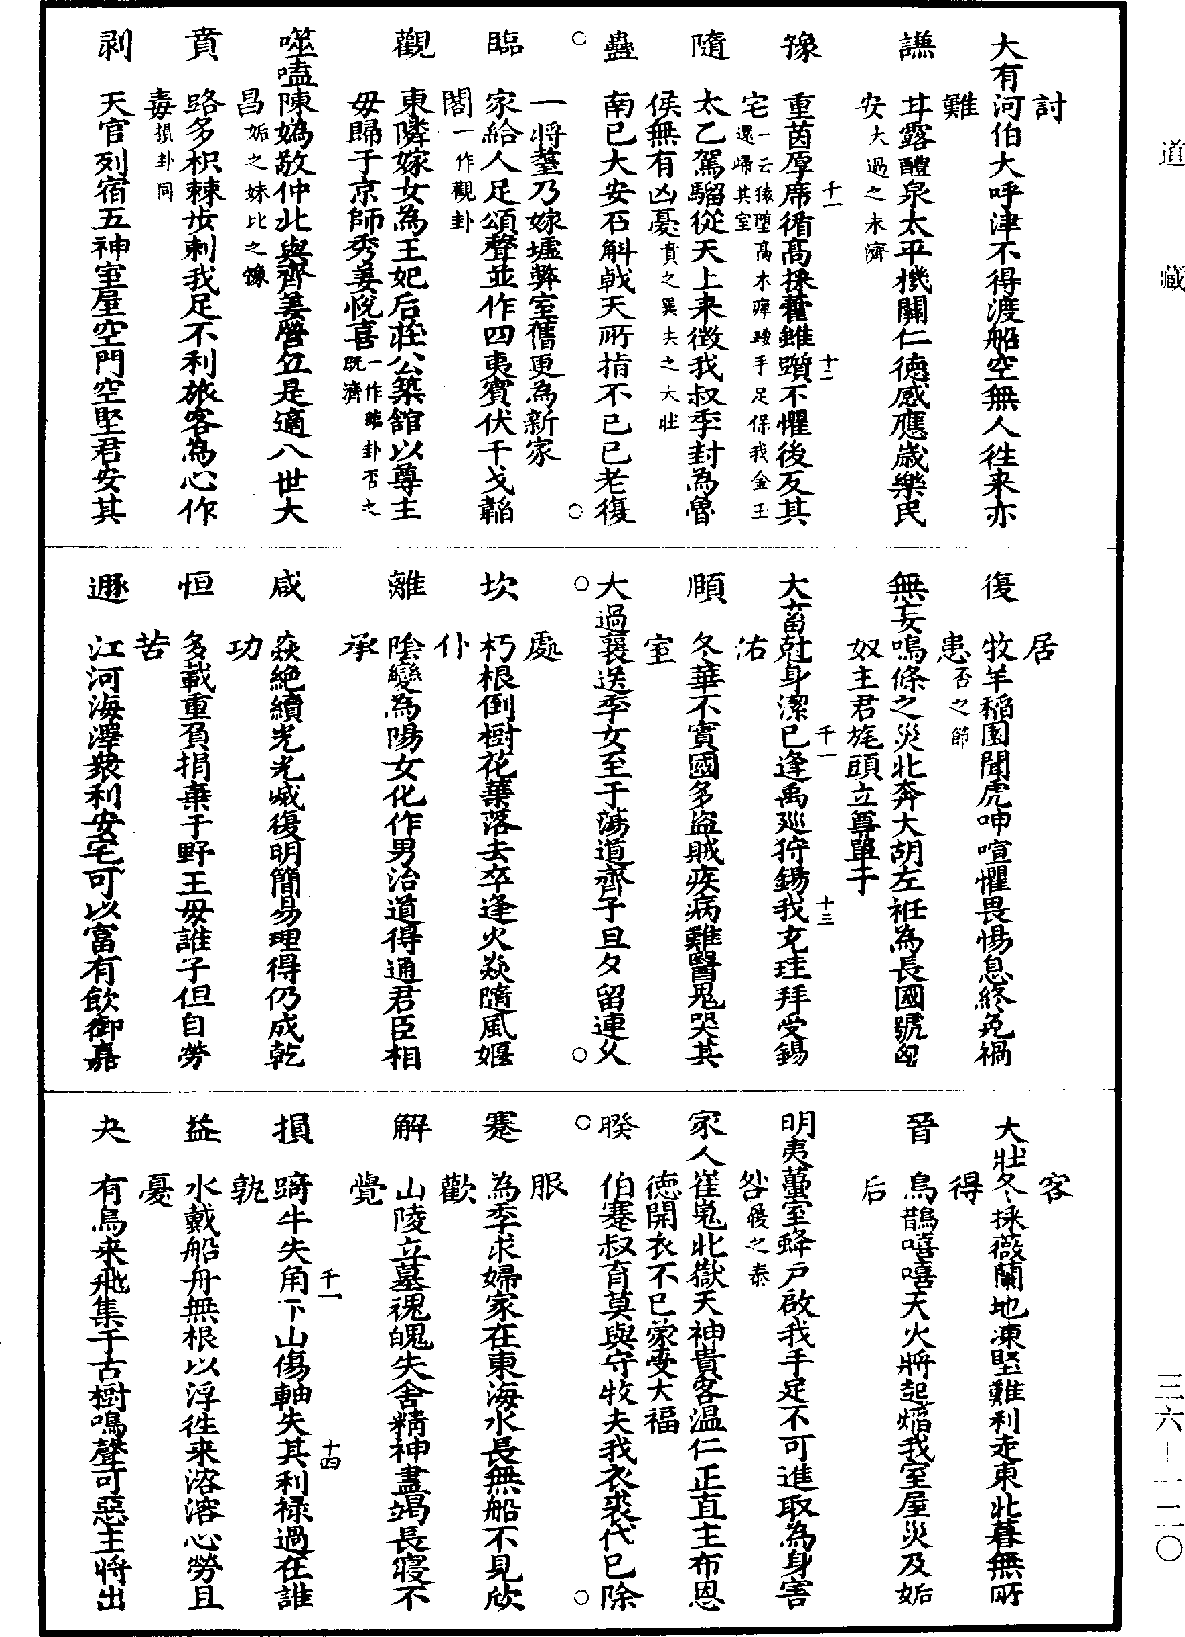 道藏
討
大有河伯大呼津不得渡船空無人往来亦
難
謙 甘露醴泉太平機關仁德感應歲樂民
安大過之未濟
豫 重茵厚席循高採藿雖躓不懼後反其
十一 十二
宅一云猿墮高木瘅踒手足保我金玉還歸其室
隨 太乙駕騮從天上来徴我叔季封為魯
侯無有凶憂賁之巽夬之大壯
蠱 南巳大安石斛戟天所指不已已老復
一將蓥乃嫁墟弊室舊更為新家
臨 家給人足頌聲並作四夷賓伏干戈韜
閣一作觀卦
觀 東隣嫁女為王妃后莊公築館以尊主
母歸于京師秀姜悅喜一作臨卦否之既濟
噬嗑陳嬀敬仲北與齊姜營丘是適八世大
昌姤之妹比之豫
賁 路多枳棘歩刺我足不利旅客為心作
毒損卦同
剥 天官列宿五神室屋空門空堅君安其
居
復 牧羊稻園聞虎呻喧懼畏惕息終免禍
患否之節
無妄鳴條之災北奔大胡左衽為長國號匈
奴主君旄頭立尊單于
大畜尅身潔已逢禹廵狩錫我玄珪拜受錫
十一 十三
佑
頤 冬華不實國多盜賊疾病難醫鬼哭其
室
大過襃送季女至于蕩道齊子旦夕留連久
處
坎 朽根倒樹花葉落去卒逢火焱隨風嫗
仆
離 陰變為陽女化作男治道得通君臣相
承
咸 焱絶續光光㓕復明簡易理得仍成乾
功
恒 多載重負捐棄于野王母誰子但自勞
苦
遯 江河海澤衆利安宅可以富有飲御嘉
客
大壯冬採薇蘭地凍堅難利走東北暮無所
得
晉 鳥鵲嘻嘻天火將起燔我室屋災及姤
后
明夷蠆室蜂戸啟我手足不可進取為身害
咎復之泰
家人崔嵬北嶽天神貴客温仁正直主布恩
徳開衣不已蒙受大福
睽 伯蹇叔盲莫與守牧夫我衣裘代已除
服
蹇 為季求婦家在東海水長無船不見欣
歡
解 山陵立墓魂魄失舍精神盡竭長寢不
覺
損 踦牛失角下山傷軸失其利禄過在誰
十一 十四
孰
益 水戴船舟無根以浮往来溶溶心勞且
憂
夬 有鳥来飛集于古樹鳴聲可惡主將出
三六-一二〇